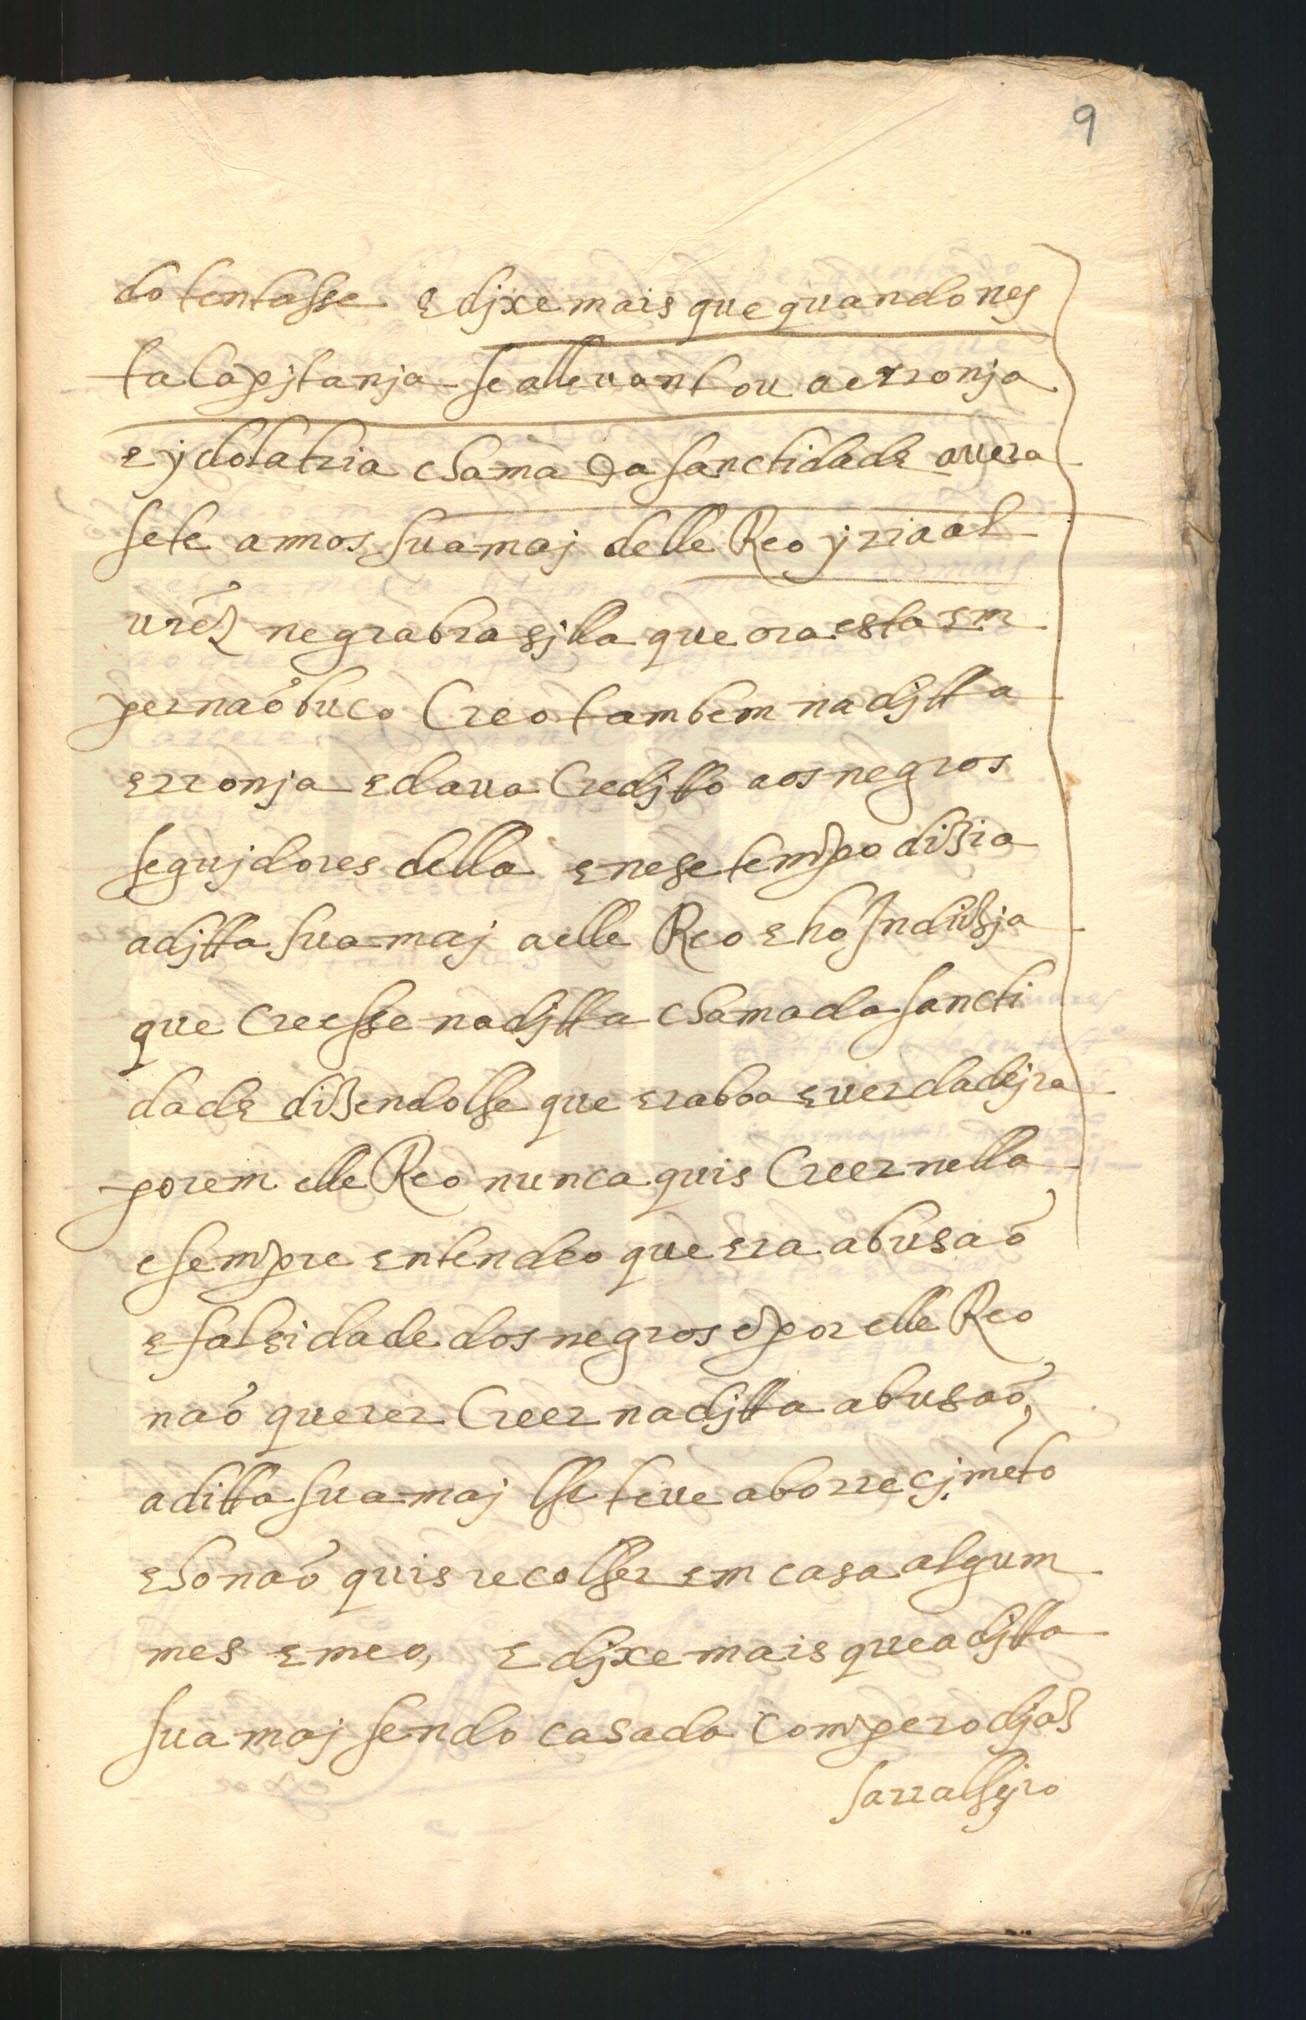 9
do tentasse e djxe mais que quando nes
ta Capjtanja se allevantou a erronja
e ydolatria chamada sanctidade avera
sete annos, sua maj delle Reo yria al
urēz negra brasjlla que ora esta em
pernaõbuco Creo tambem na djtta
erronja e dava Credjtto aos negros
segujdores della e nese tempo dizia
a djtta sua maj a elle Reo e ho Induzja
que Creesse na djtta chamada sancti
dade dizendolhe que era boa e verdadejra
porem elle Reo nunca quis Creer nella
e sempre entendeo que era abusaõ
e falsidade dos negros e por elle Reo
naõ querer Creer na djtta abusaõ,
a ditta sua maj lhe teve aborrecjmēto
e ho naõ quis recolher em casa algum
mes e meo, e djxe mais que a djtta
sua maj sendo casada Com pero djaz
sarralhejro